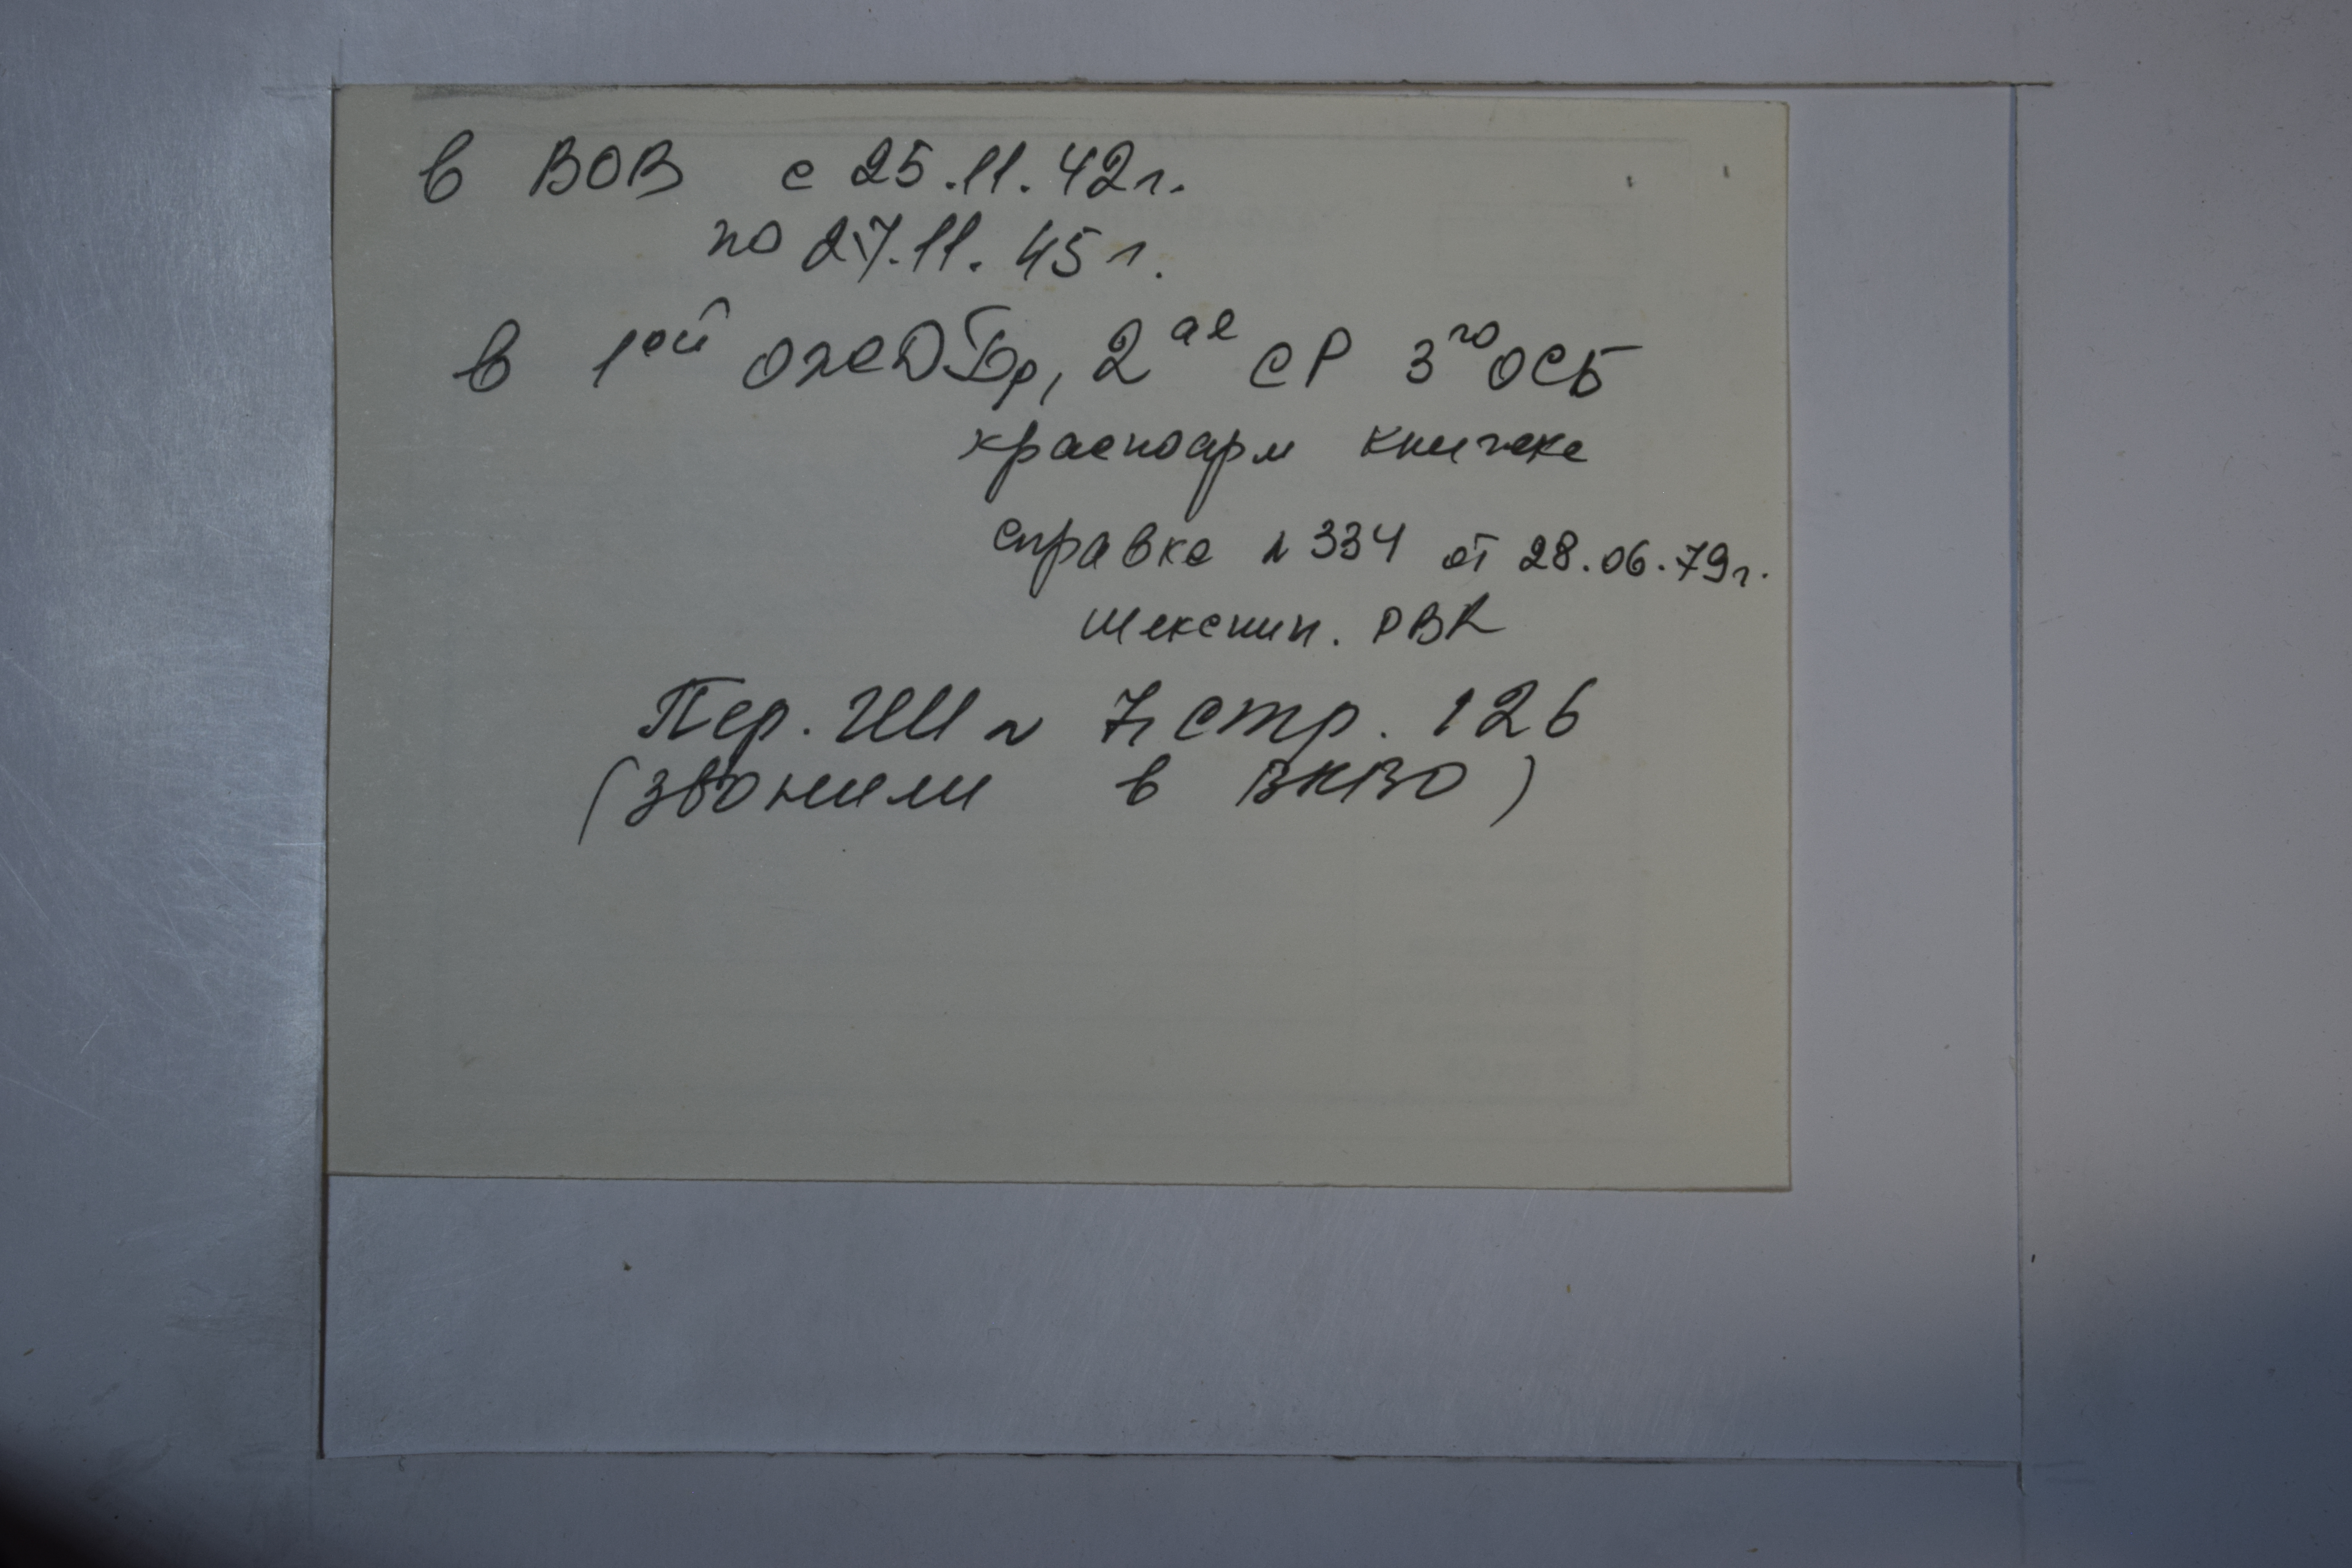 в ВОВ с 25.11.42г.
по 27.11.45г.
в 1ой ожДБр, 2ая СР 3го ОСБ
красноарм книжка
справка N 334 от 28.06.79г.
Шекснин. РВК
Пер. ГШ N 7, стр. 126
(звонили в ВКВО)